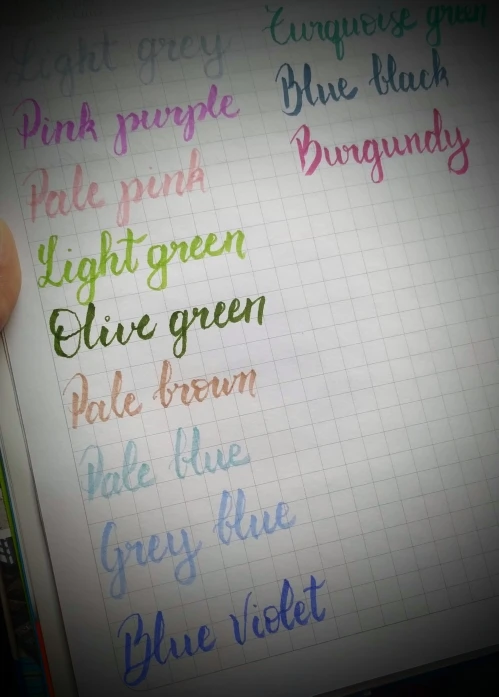 Light grey
Pink purple
Pale pink
Light green
Olive green
Pale brown
Pale blue
Grey blue
Blue violet
Turquoise green
Blue black
Burgundy